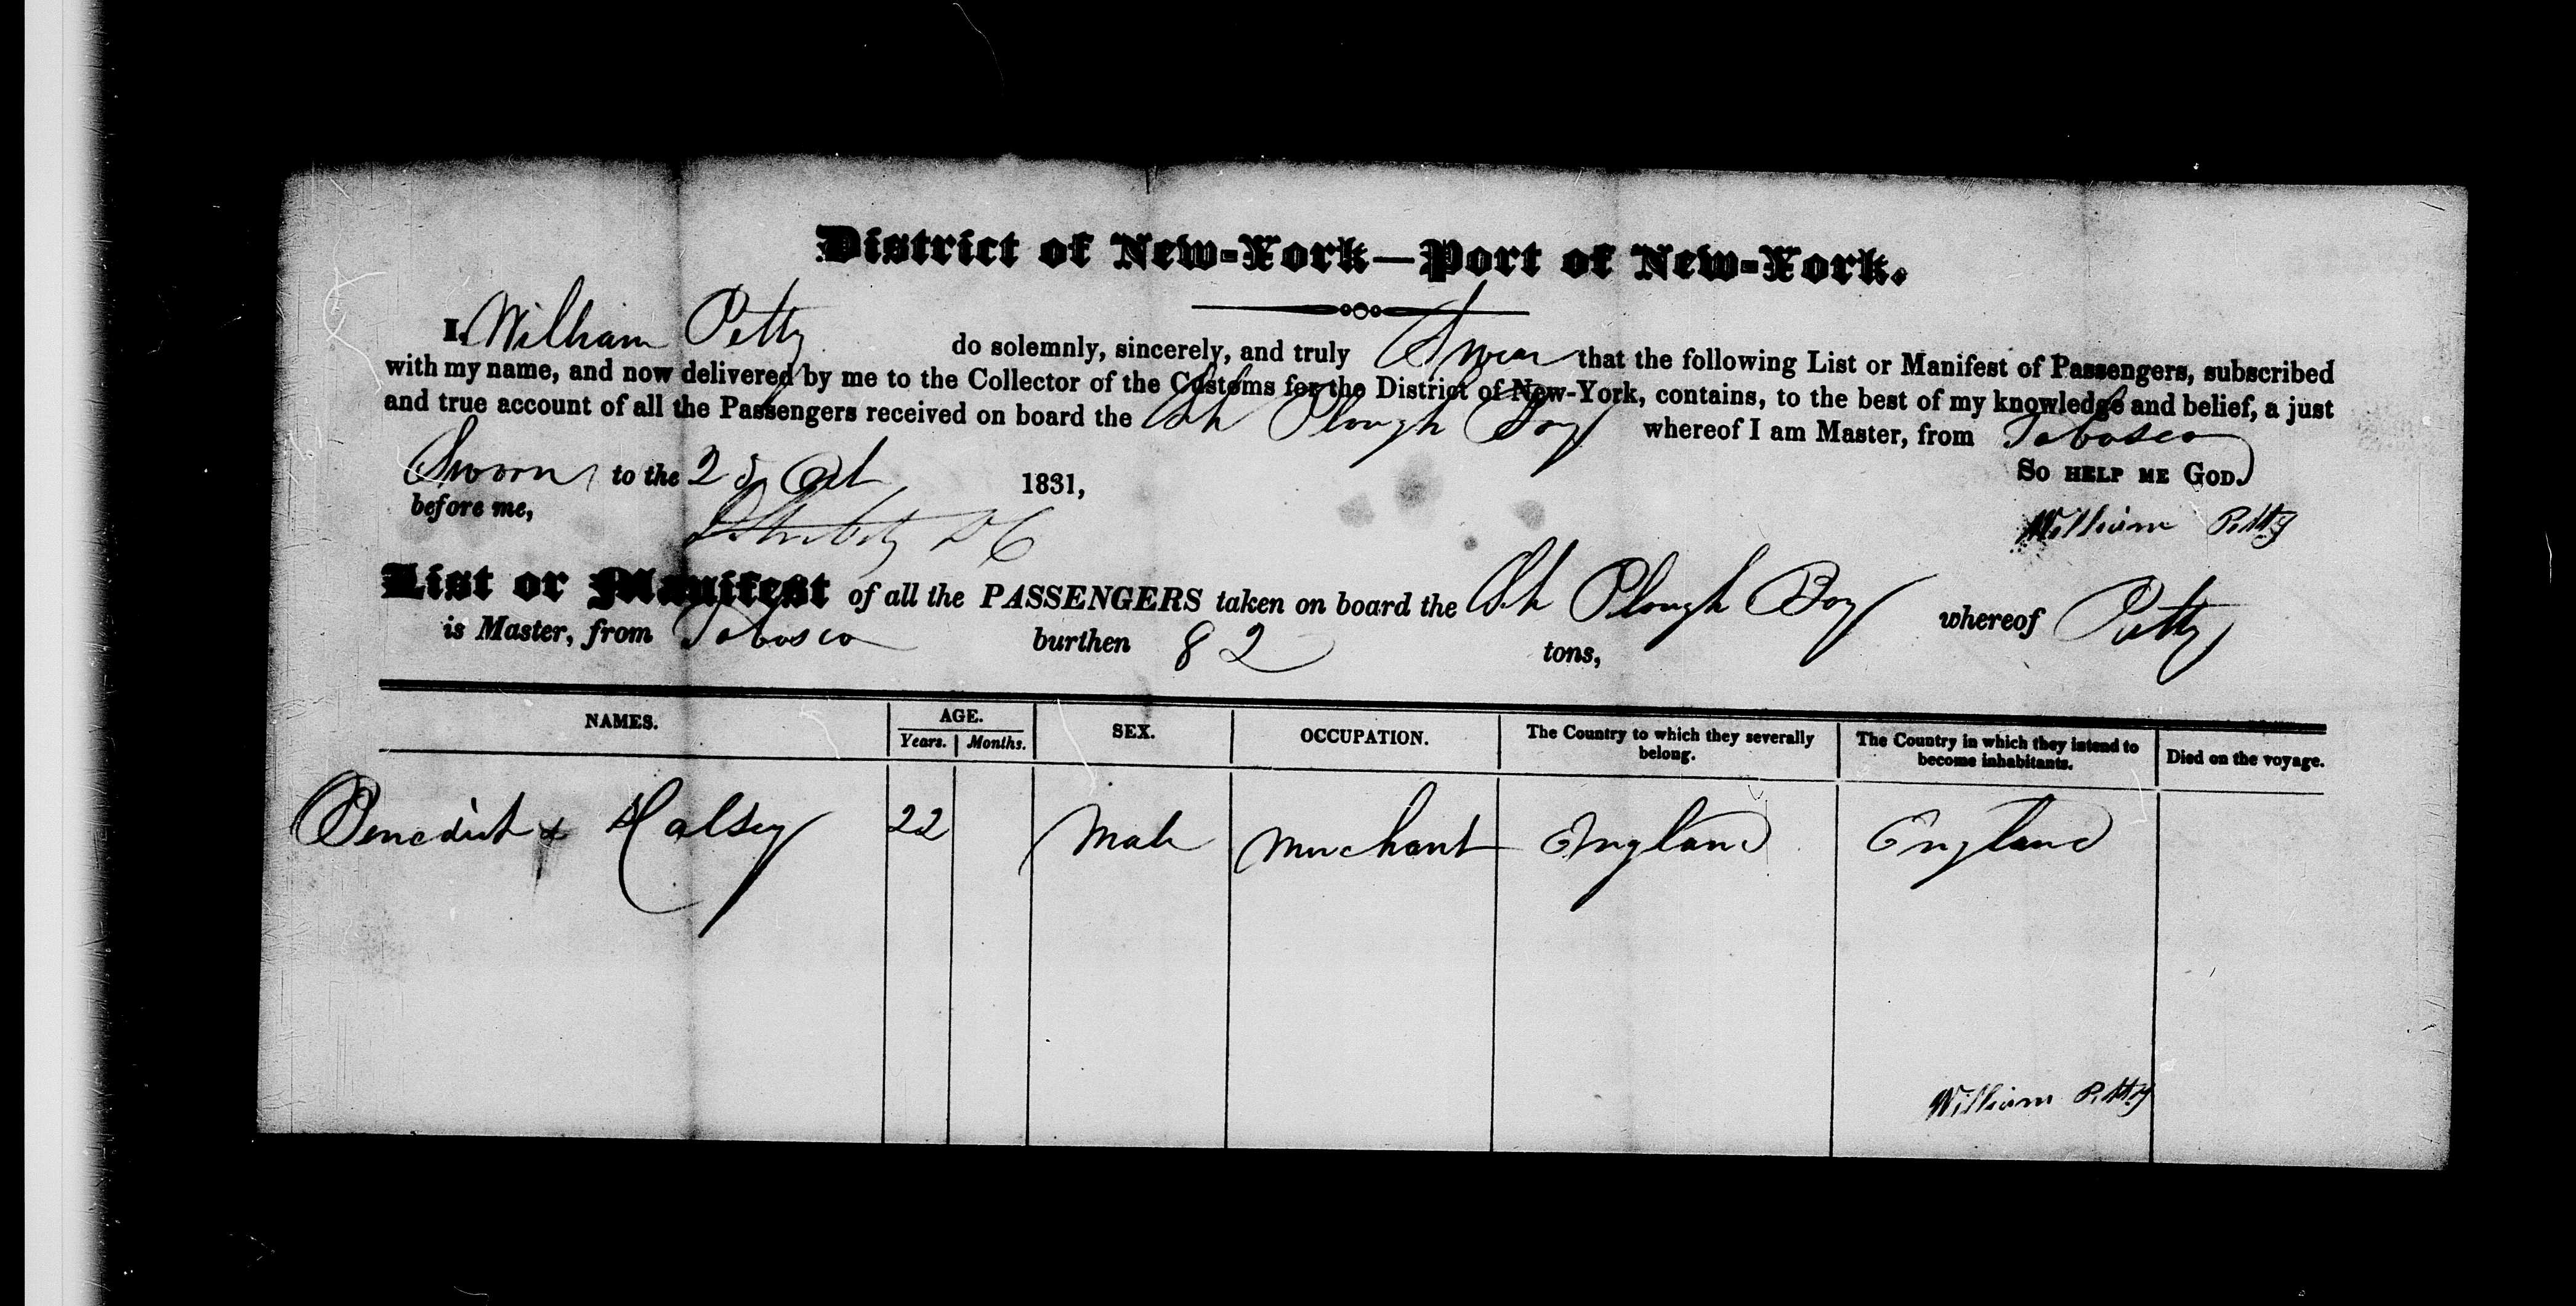 District of New-York—Port of New-York.
I, William Petty do solemnly, sincerely, and truly Swear that the following List or Manifest of Passengers, subscribed
with my name, and now delivered by me to the Collector of the Customs for the District of New-York, contains, to the best of my knowledge and belief, a just
and true account of all the Passengers received on board the Sch Plough Boy whereof I am Master, from Tobasco
Sworn to the 25 Oct 1831, So help me God.
before me, William Petty
List or Manifest of all the PASSENGERS taken on board the Sch Plough Boy whereof Petty
is Master, from Tobasco burthen 82 tons,
NAMES. AGE. Years. Months. SEX. OCCUPATION. The Country to which they severally belong. The Country in which they intend to become inhabitants. Died on the voyage.
Benedict Halsey 22 Male Merchant England England
William Petty